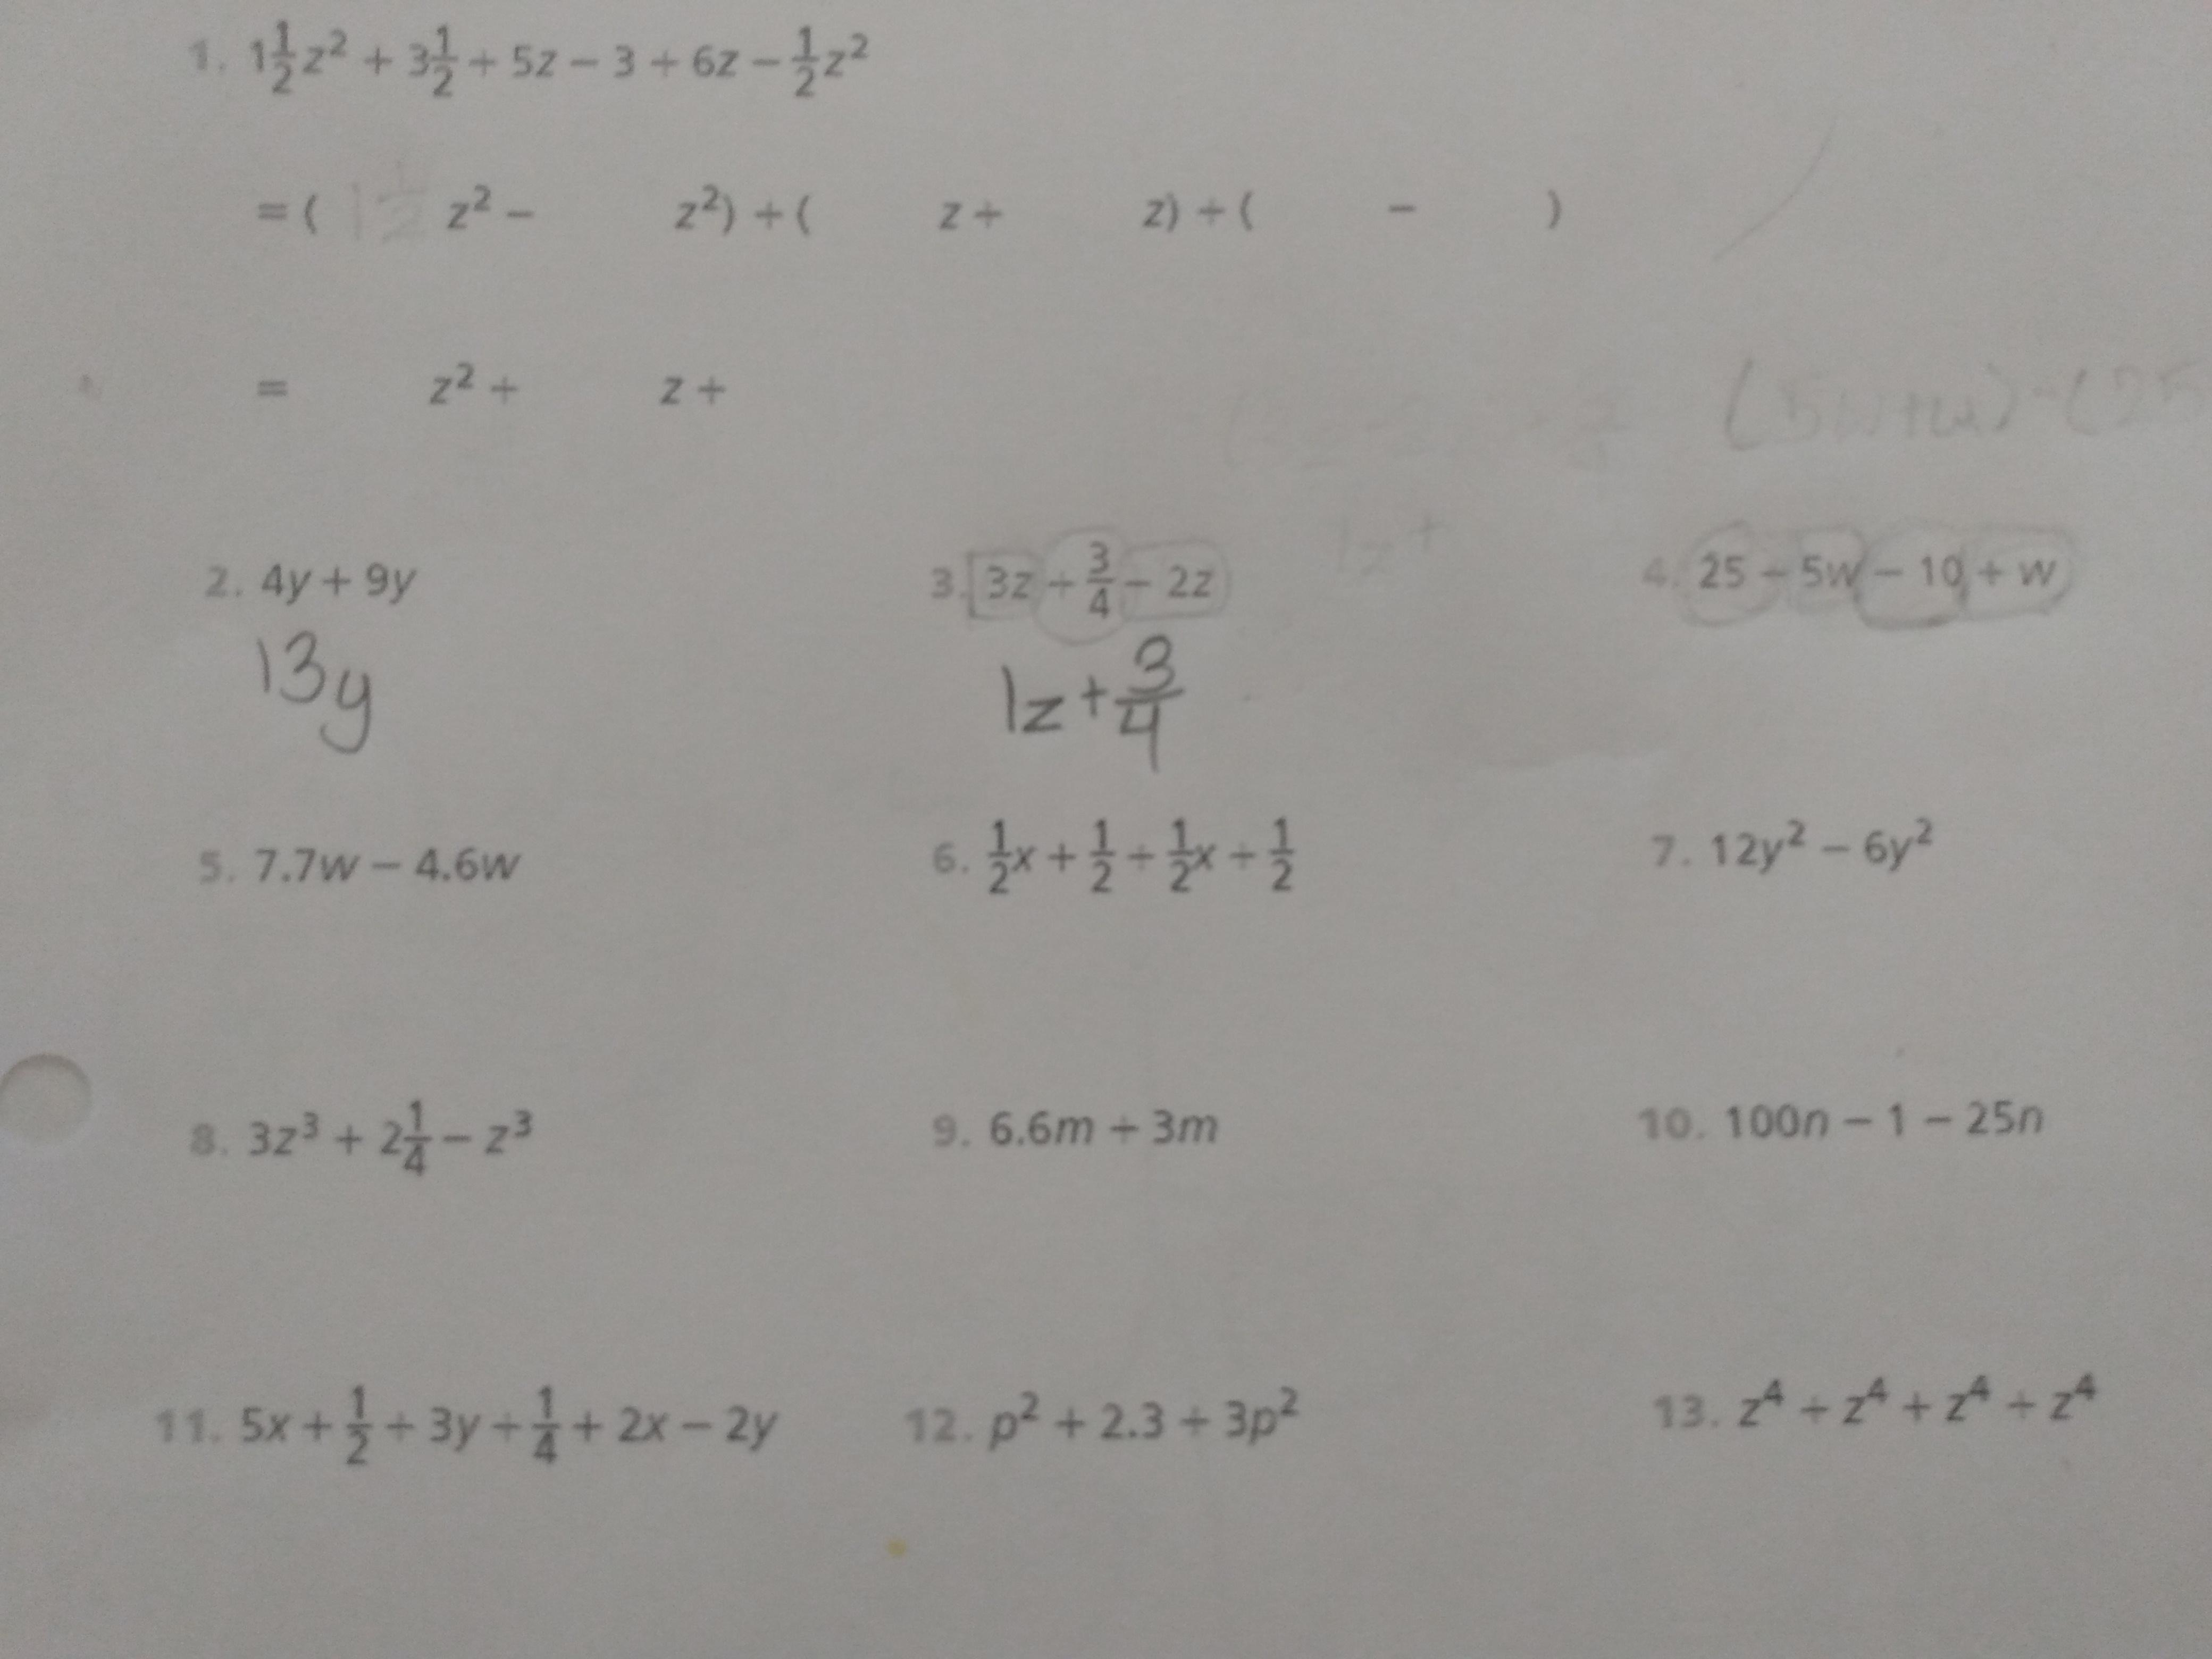 1. 1 1/2 z² + 3 1/2 + 5z − 3 + 6z − 1/2 z²
= ( 1 1/2 z² − z²) + ( z + z) + ( − )
= z² + z +
(5w+w)-(25
1z +
2. 4y + 9y
3. 3z + 3/4 − 2z
4. 25 − 5w − 10 + w
13y
1z + 3/4
5. 7.7w − 4.6w
6. 1/2 x + 1/2 + 1/2 x + 1/2
7. 12y² − 6y²
8. 3z³ + 2 1/4 − z³
9. 6.6m + 3m
10. 100n − 1 − 25n
11. 5x + 1/2 + 3y + 1/4 + 2x − 2y
12. p² + 2.3 + 3p²
13. z⁴ + z⁴ + z⁴ + z⁴